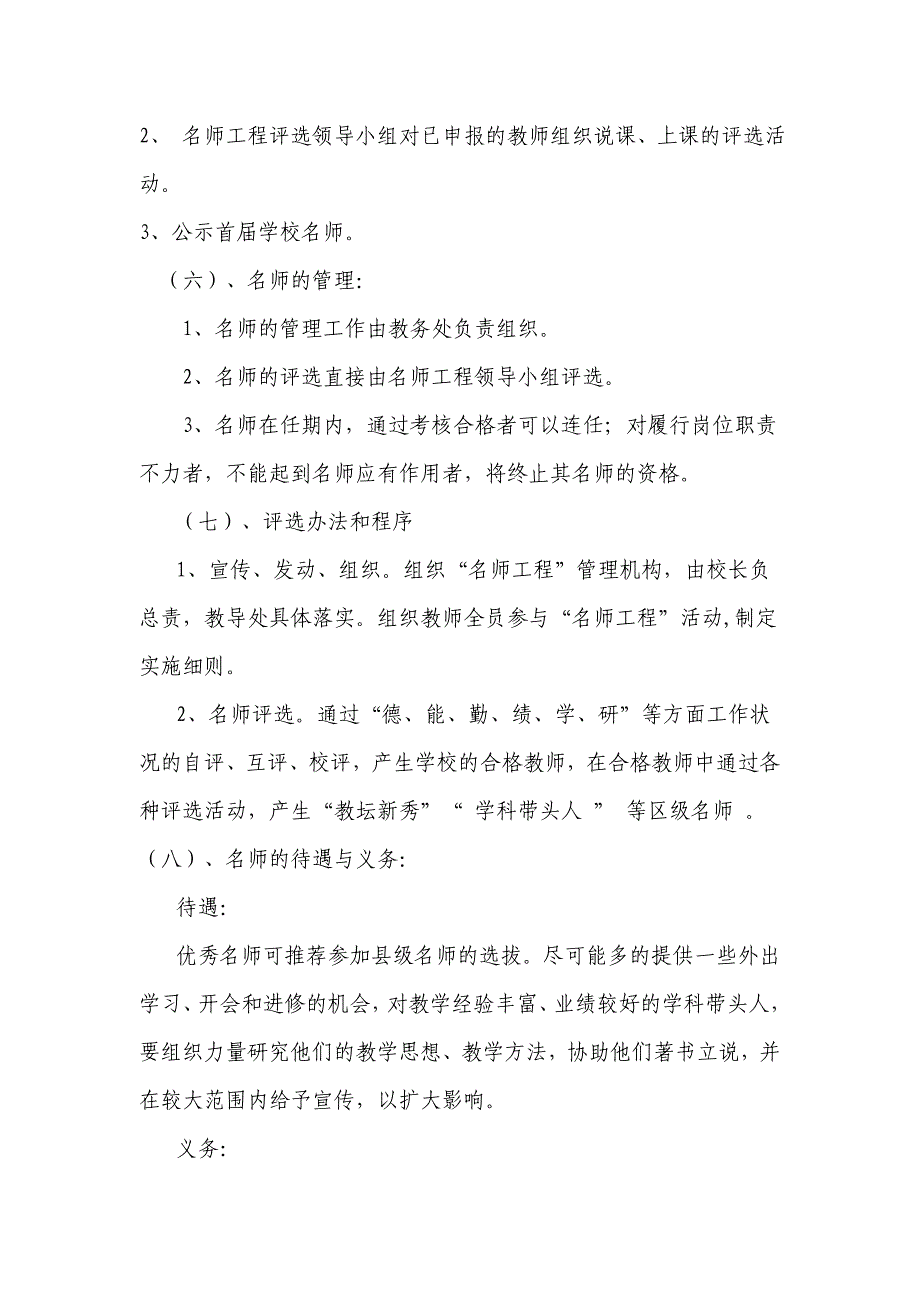 2、 名师工程评选领导小组对已申报的教师组织说课、上课的评选活
动。
3、公示首届学校名师。
（六）、名师的管理：
1、名师的管理工作由教务处负责组织。
2、名师的评选直接由名师工程领导小组评选。
3、名师在任期内，通过考核合格者可以连任；对履行岗位职责
不力者，不能起到名师应有作用者，将终止其名师的资格。
（七）、评选办法和程序
1、宣传、发动、组织。组织“名师工程”管理机构，由校长负
总责，教导处具体落实。组织教师全员参与“名师工程”活动,制定
实施细则。
2、名师评选。通过“德、能、勤、绩、学、研”等方面工作状
况的自评、互评、校评，产生学校的合格教师，在合格教师中通过各
种评选活动，产生“教坛新秀”“ 学科带头人 ” 等区级名师 。
（八）、名师的待遇与义务：
待遇：
优秀名师可推荐参加县级名师的选拔。尽可能多的提供一些外出
学习、开会和进修的机会，对教学经验丰富、业绩较好的学科带头人，
要组织力量研究他们的教学思想、教学方法，协助他们著书立说，并
在较大范围内给予宣传，以扩大影响。
义务：